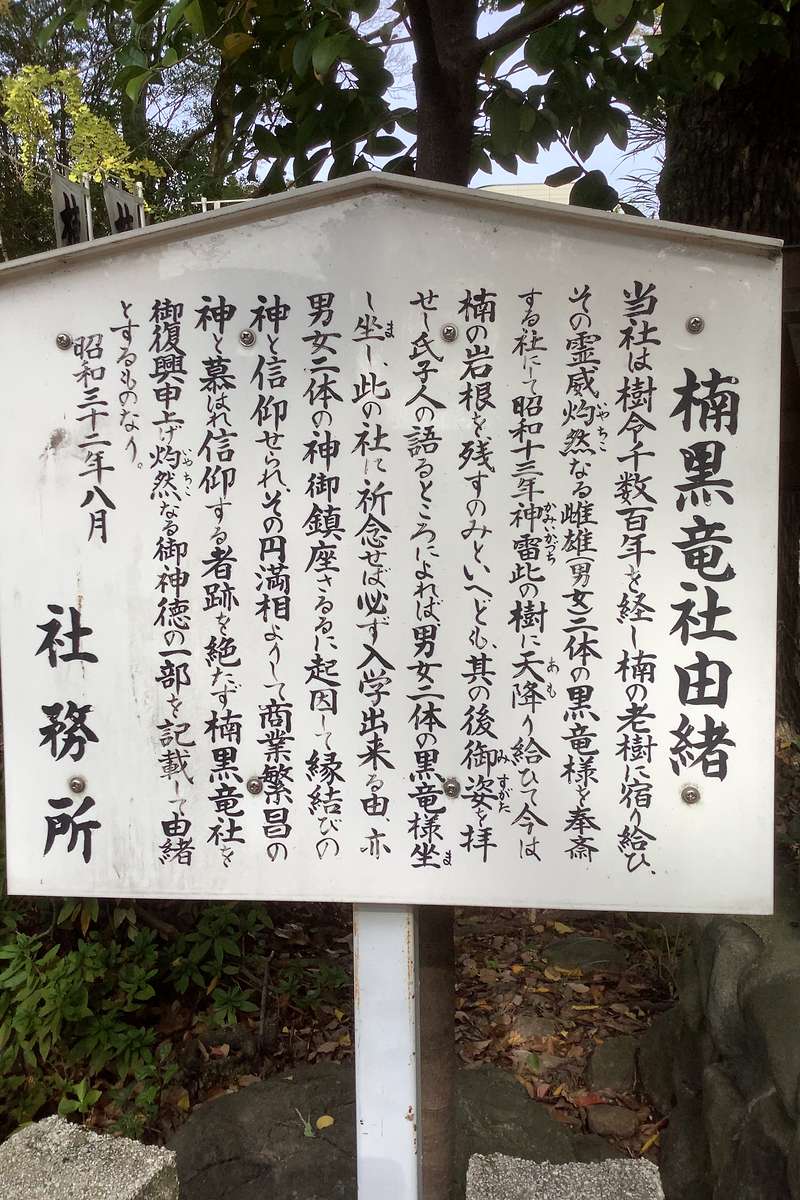 楠黒竜社由緒
当社は樹令千数百年を経し楠の老樹に宿り給ひ、
その霊威灼然なる雌雄(男女)二体の黒竜様を奉斎
やちこ
する社にて昭和十三年神雷此の樹に天降り給ひて今は
かみいかづち
あも
楠の岩根を残すのみといへども、其の後御姿を拝
みすがた
せし氏子人の語るところによれば、男女二体の黒竜様坐
ま
し坐し、此の社に祈念せば必ず入学出来る由、亦
ま
男女二体の神御鎮座さるるに起因して縁結びの
神と信仰せられ、その円満相よりして商業繁昌の
神と慕はれ信仰する者跡を絶たず楠黒竜社を
御復興申上げ灼然なる御神徳の一部を記載して由緒
いやちこ
とするものなり。
昭和三十二年八月
社務所